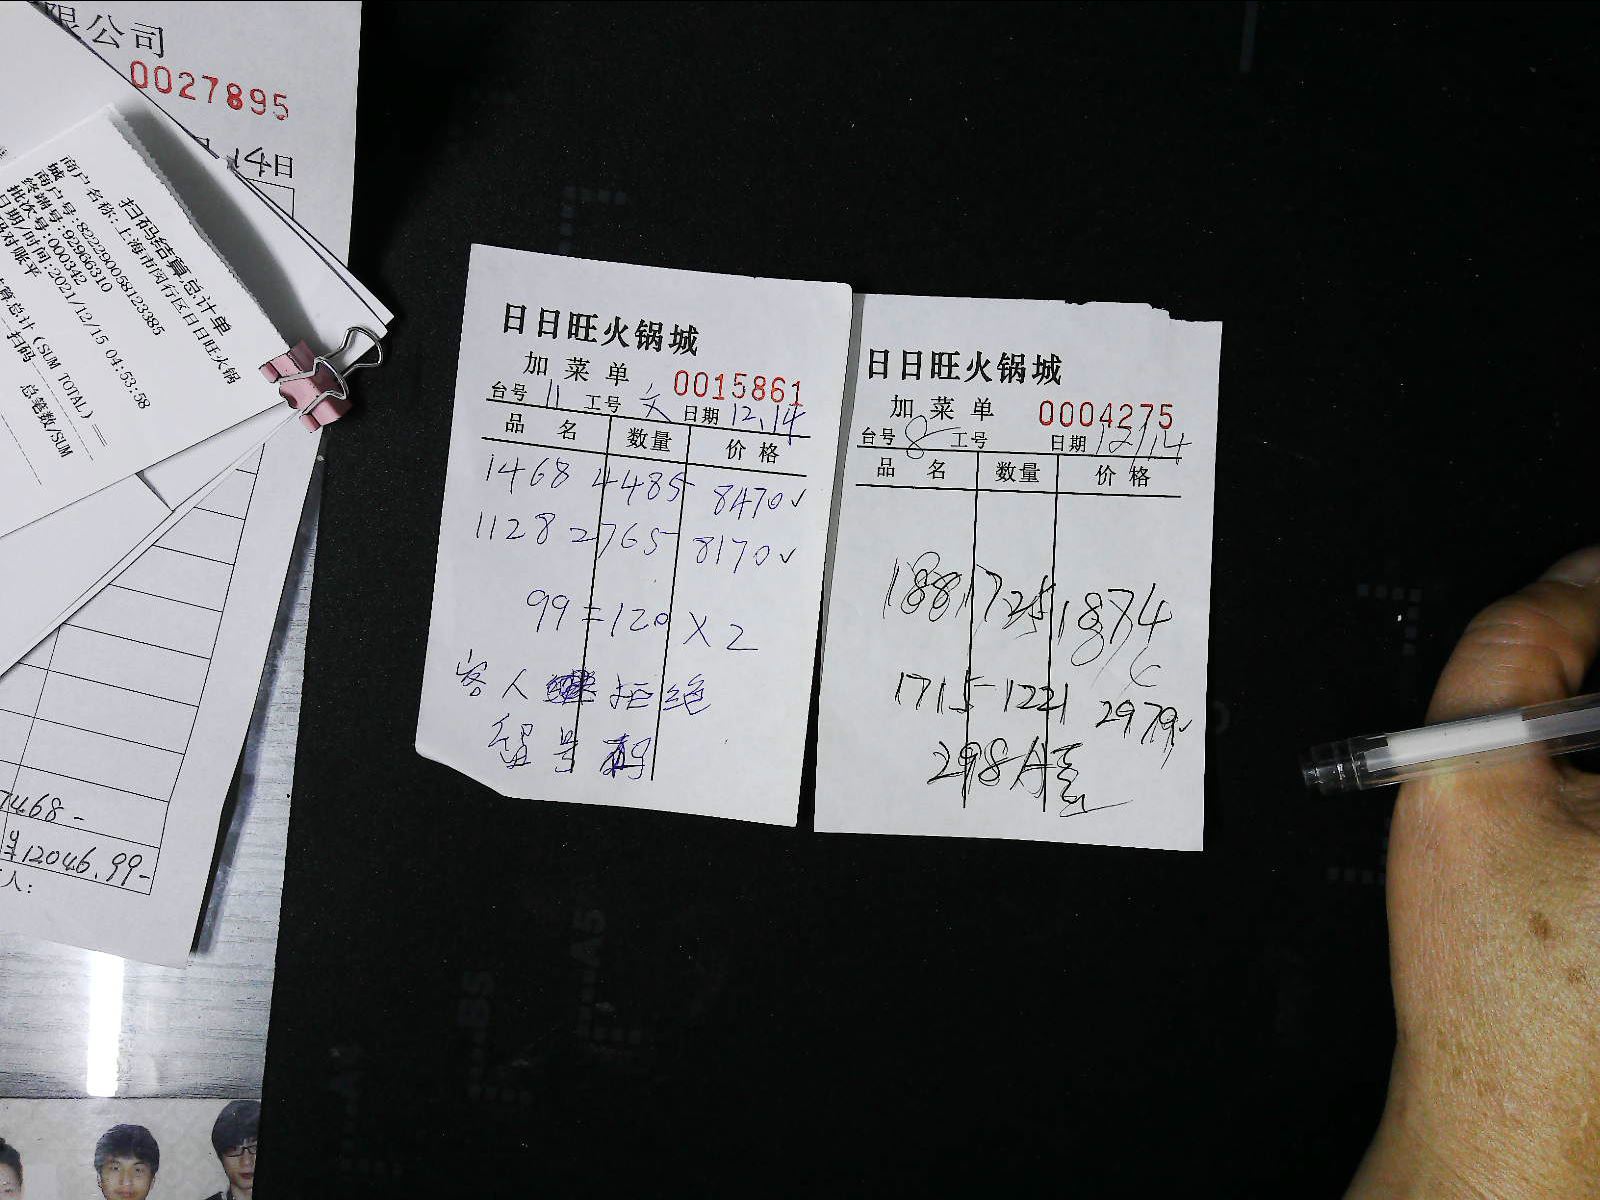 限公司
0027895
14日
扫码结算总计单
商户名称:上海市闵行区日日旺火锅
城
商户号:822290058123385
终端号:92966310
批次号:000342
日期/时间:2021/12/15 04:53:58
对账平
算总计(SUM TOTAL)
扫码 总笔数/SUM
7468-
¥12046.99-
人:
日日旺火锅城
加菜单 0015861
台号 11 工号 文 日期 12.14
品名 数量 价格
1468 4485 8470✓
1128 2765 8170✓
99=120 X 2
客人 拒绝
留号码
日日旺火锅城
加菜单 0004275
台号 8 工号 日期 12/14
品名 数量 价格
1881 725 1874
1715 1221 2979✓
298A套